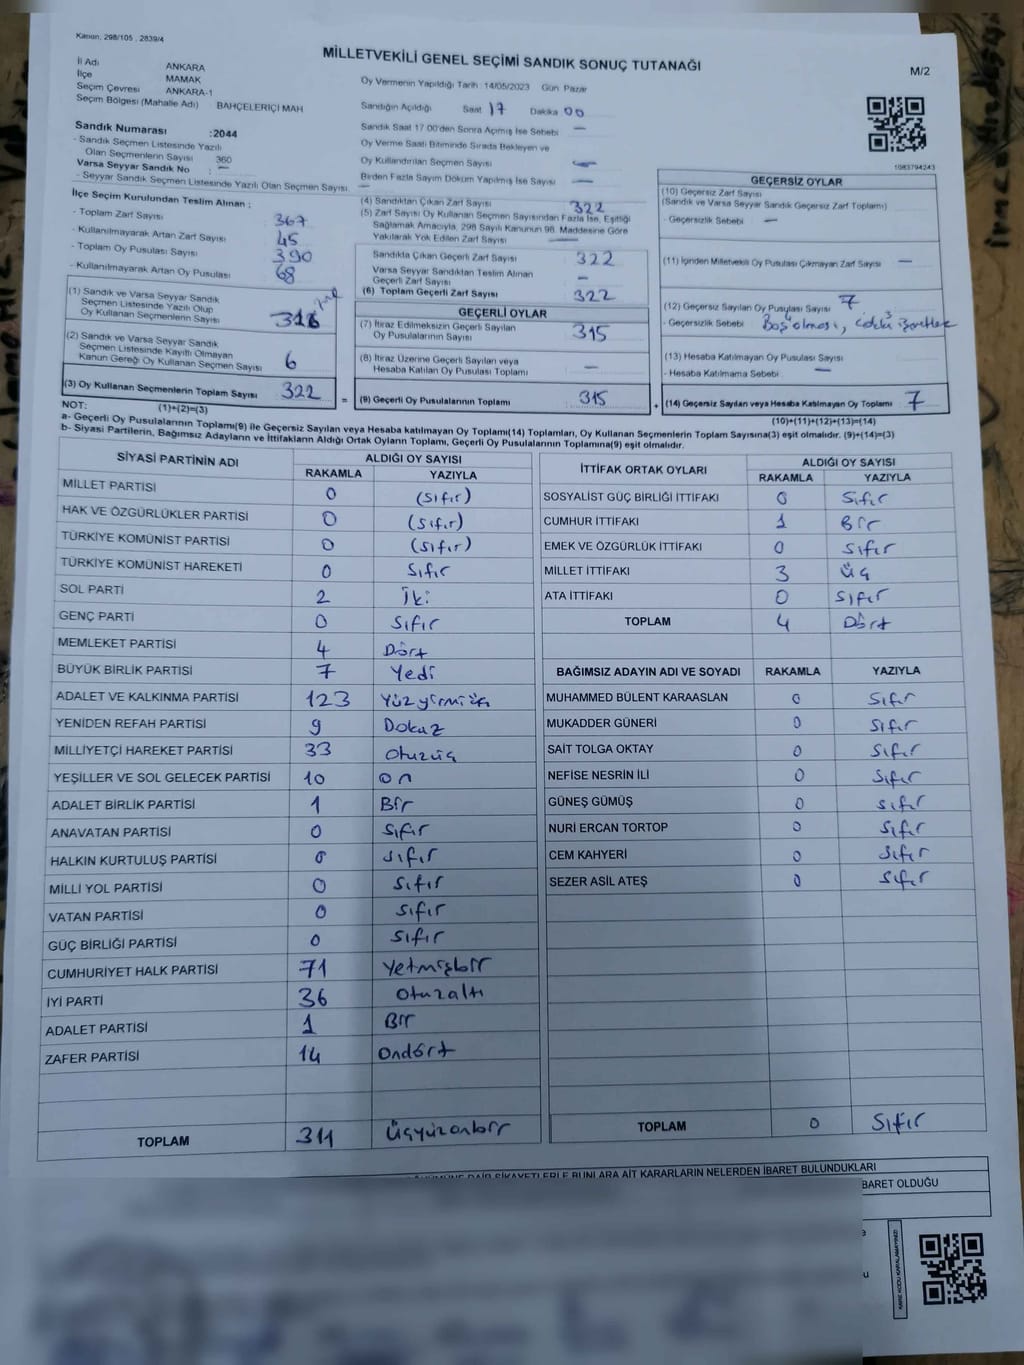 Kanun, 298/105 , 2839/4
MİLLETVEKİLİ GENEL SEÇİMİ SANDIK SONUÇ TUTANAĞI
M/2
İl Adı ANKARA
İlçe MAMAK
Seçim Çevresi ANKARA-1
Seçim Bölgesi (Mahalle Adı) BAHÇELERİÇİ MAH
Sandık Numarası :2044
- Sandık Seçmen Listesinde Yazılı
Olan Seçmenlerin Sayısı 360
Varsa Seyyar Sandık No : —
- Seyyar Sandık Seçmen Listesinde Yazılı Olan Seçmen Sayısı: —
İlçe Seçim Kurulundan Teslim Alınan :
- Toplam Zarf Sayısı 367
- Kullanılmayarak Artan Zarf Sayısı 45
- Toplam Oy Pusulası Sayısı 390
- Kullanılmayarak Artan Oy Pusulası 68
(1) Sandık ve Varsa Seyyar Sandık
Seçmen Listesinde Yazılı Olup
Oy Kullanan Seçmenlerin Sayısı 316
(2) Sandık ve Varsa Seyyar Sandık
Seçmen Listesinde Kayıtlı Olmayan
Kanun Gereği Oy Kullanan Seçmen Sayısı 6
(3) Oy Kullanan Seçmenlerin Toplam Sayısı 322
Oy Vermenin Yapıldığı Tarih : 14/05/2023 Gün Pazar
Sandığın Açıldığı Saat 17 Dakika 00
Sandık Saat 17:00'den Sonra Açılmış İse Sebebi —
Oy Verme Saati Bitiminde Sırada Bekleyen ve
Oy Kullandırılan Seçmen Sayısı —
Birden Fazla Sayım Döküm Yapılmış İse Sayısı —
(4) Sandıktan Çıkan Zarf Sayısı 322
(5) Zarf Sayısı Oy Kullanan Seçmen Sayısından Fazla İse, Eşitliği
Sağlamak Amacıyla, 298 Sayılı Kanunun 98. Maddesine Göre
Yakılarak Yok Edilen Zarf Sayısı —
Sandıkta Çıkan Geçerli Zarf Sayısı 322
Varsa Seyyar Sandıktan Teslim Alınan
Geçerli Zarf Sayısı —
(6) Toplam Geçerli Zarf Sayısı 322
GEÇERLİ OYLAR
(7) İtiraz Edilmeksizin Geçerli Sayılan
Oy Pusulalarının Sayısı 315
(8) İtiraz Üzerine Geçerli Sayılan veya
Hesaba Katılan Oy Pusulası Toplamı —
= (9) Geçerli Oy Pusulalarının Toplamı 315
1083794243
GEÇERSİZ OYLAR
(10) Geçersiz Zarf Sayısı
(Sandık ve Varsa Seyyar Sandık Geçersiz Zarf Toplamı)
- Geçersizlik Sebebi —
(11) İçinden Milletvekili Oy Pusulası Çıkmayan Zarf Sayısı —
(12) Geçersiz Sayılan Oy Pusulası Sayısı 7
- Geçersizlik Sebebi Boş olması,
(13) Hesaba Katılmayan Oy Pusulası Sayısı
- Hesaba Katılmama Sebebi —
+ (14) Geçersiz Sayılan veya Hesaba Katılmayan Oy Toplamı 7
NOT: (1)+(2)=(3)
(10)+(11)+(12)+(13)=(14)
a- Geçerli Oy Pusulalarının Toplamı(9) ile Geçersiz Sayılan veya Hesaba katılmayan Oy Toplamı(14) Toplamları, Oy Kullanan Seçmenlerin Toplam Sayısına(3) eşit olmalıdır. (9)+(14)=(3)
b- Siyasi Partilerin, Bağımsız Adayların ve İttifakların Aldığı Ortak Oyların Toplamı, Geçerli Oy Pusulalarının Toplamına(9) eşit olmalıdır.
SİYASİ PARTİNİN ADI ALDIĞI OY SAYISI
RAKAMLA YAZIYLA
MİLLET PARTİSİ 0 (Sıfır)
HAK VE ÖZGÜRLÜKLER PARTİSİ 0 (Sıfır)
TÜRKİYE KOMÜNİST PARTİSİ 0 (Sıfır)
TÜRKİYE KOMÜNİST HAREKETİ 0 Sıfır
SOL PARTİ 2 İki
GENÇ PARTİ 0 Sıfır
MEMLEKET PARTİSİ 4 Dört
BÜYÜK BİRLİK PARTİSİ 7 Yedi
ADALET VE KALKINMA PARTİSİ 123 Yüzyirmiüç
YENİDEN REFAH PARTİSİ 9 Dokuz
MİLLİYETÇİ HAREKET PARTİSİ 33 Otuzüç
YEŞİLLER VE SOL GELECEK PARTİSİ 10 On
ADALET BİRLİK PARTİSİ 1 Bir
ANAVATAN PARTİSİ 0 Sıfır
HALKIN KURTULUŞ PARTİSİ 0 Sıfır
MİLLİ YOL PARTİSİ 0 Sıfır
VATAN PARTİSİ 0 Sıfır
GÜÇ BİRLİĞİ PARTİSİ 0 Sıfır
CUMHURİYET HALK PARTİSİ 71 Yetmişbir
İYİ PARTİ 36 Otuzaltı
ADALET PARTİSİ 1 Bir
ZAFER PARTİSİ 14 Ondört
TOPLAM 311 Üçyüzonbir
İTTİFAK ORTAK OYLARI ALDIĞI OY SAYISI
RAKAMLA YAZIYLA
SOSYALİST GÜÇ BİRLİĞİ İTTİFAKI 0 Sıfır
CUMHUR İTTİFAKI 1 Bir
EMEK VE ÖZGÜRLÜK İTTİFAKI 0 Sıfır
MİLLET İTTİFAKI 3 Üç
ATA İTTİFAKI 0 Sıfır
TOPLAM 4 Dört
BAĞIMSIZ ADAYIN ADI VE SOYADI RAKAMLA YAZIYLA
MUHAMMED BÜLENT KARAASLAN 0 Sıfır
MUKADDER GÜNERİ 0 Sıfır
SAİT TOLGA OKTAY 0 Sıfır
NEFİSE NESRİN İLİ 0 Sıfır
GÜNEŞ GÜMÜŞ 0 Sıfır
NURİ ERCAN TORTOP 0 Sıfır
CEM KAHYERİ 0 Sıfır
SEZER ASİL ATEŞ 0 Sıfır
TOPLAM 0 Sıfır
DAİR ŞİKAYETLERLE BUNLARA AİT KARARLARIN NELERDEN İBARET BULUNDUKLARI
BARET OLDUĞU
KARE KODU KARALAMAYINIZ!